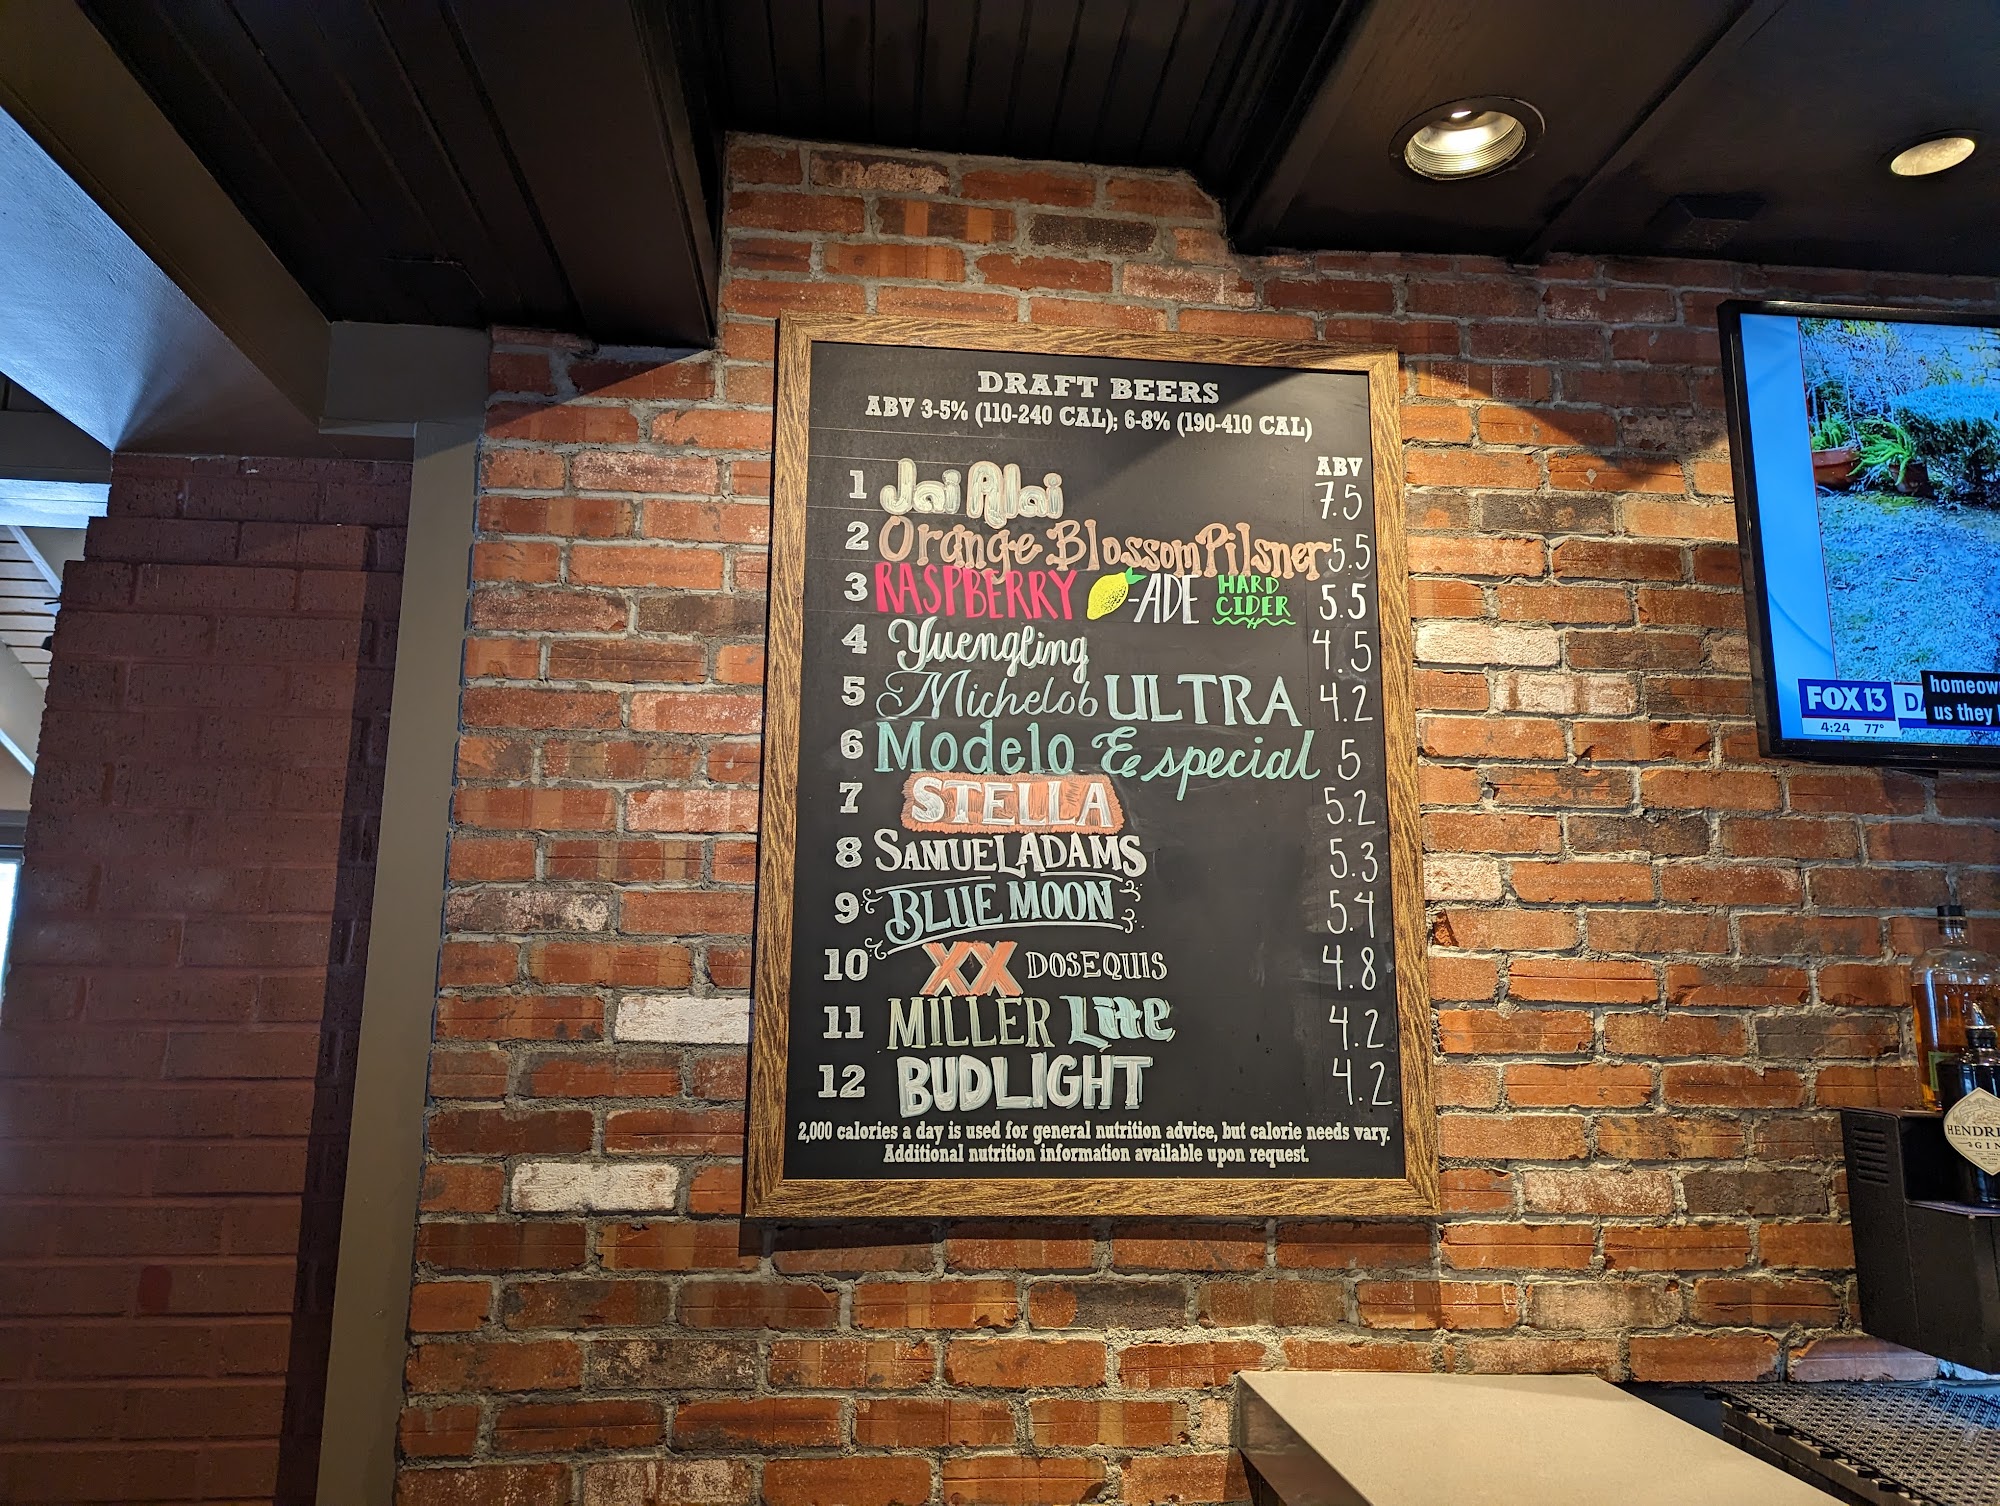 DRAFT BEERS
ABV 3-5% (110-240 CAL); 6-8% (190-410 CAL)
ABV
1 Jai Alai 7.5
2 Orange Blossom Pilsner 5.5
3 RASPBERRY -ADE HARD CIDER 5.5
4 Yuengling 4.5
5 Michelob ULTRA 4.2
6 Modelo Especial 5
7 STELLA 5.2
8 SAMUEL ADAMS 5.3
9 BLUE MOON 5.4
10 XX DOS EQUIS 4.8
11 MILLER Lite 4.2
12 BUDLIGHT 4.2
2,000 calories a day is used for general nutrition advice, but calorie needs vary.
Additional nutrition information available upon request.
FOX 13
4:24 77°
us they
GIN